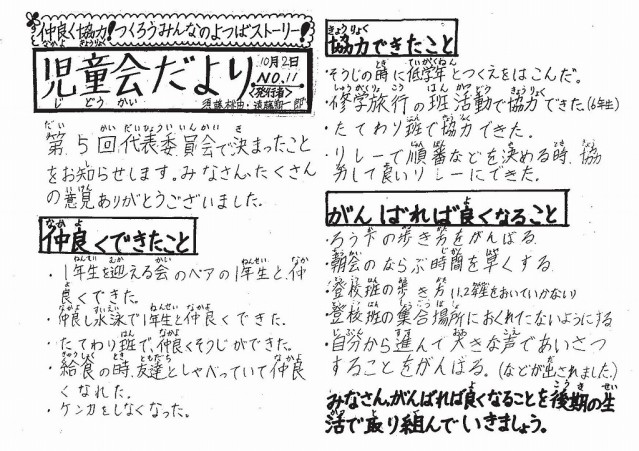 仲良く協力!つくろうみんなのよつばストーリー!
児童会だより
10月2日
NO.11
<発行者>
第5回代表委員会で決まったこと
をお知らせします。みなさん、たくさん
の意見ありがとうございました。
仲良くできたこと
・1年生を迎える会のペアの1年生と、仲
良くできた。
・仲良し水泳で1年生と仲良くできた。
・たてわり班で、仲良くそうじができた。
・給食の時、友達としゃべっていて仲良
くなれた。
・ケンカをしなくなった。
協力できたこと
・そうじの時に低学年とつくえをはこんだ。
・修学旅行の班活動で協力できた。(6年生)
・たてわり班で協力できた。
・リレーで順番などを決める時、協
力して良いリレーにできた。
がんばれば良くなること
・ろう下の歩き方をがんばる。
・朝会のならぶ時間を早くする。
・登校班の歩き方(1,2年生をおいていかない)
・登校班の集合場所におくれてこないようにする
・自分から進んで大きな声であいさつ
することをがんばる。(などが出されました。)
みなさん、がんばれば良くなることを後期の生
活で取り組んでいきましょう。